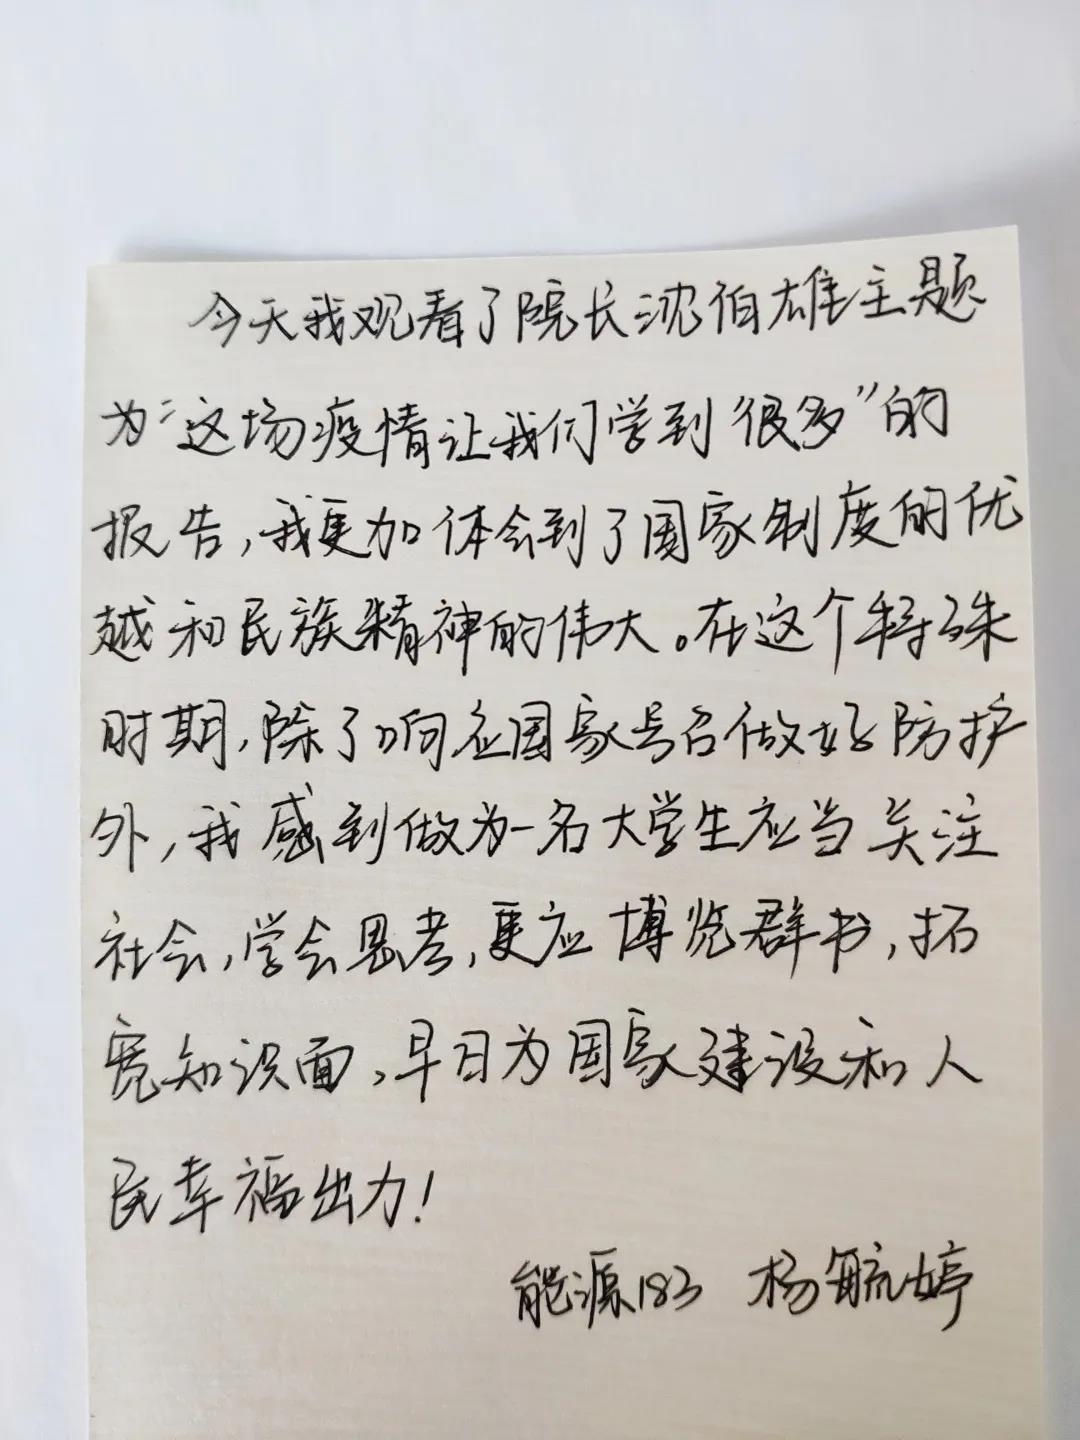 今天我观看了院长沈伯雄主题
为“这场疫情让我们学到很多”的
报告,我更加体会到了国家制度的优
越和民族精神的伟大。在这个特殊
时期,除了响应国家号召做好防护
外,我感到做为一名大学生应当关注
社会,学会思考,更应博览群书,拓
宽知识面,早日为国家建设和人
民幸福出力!
能源183 杨毓婷